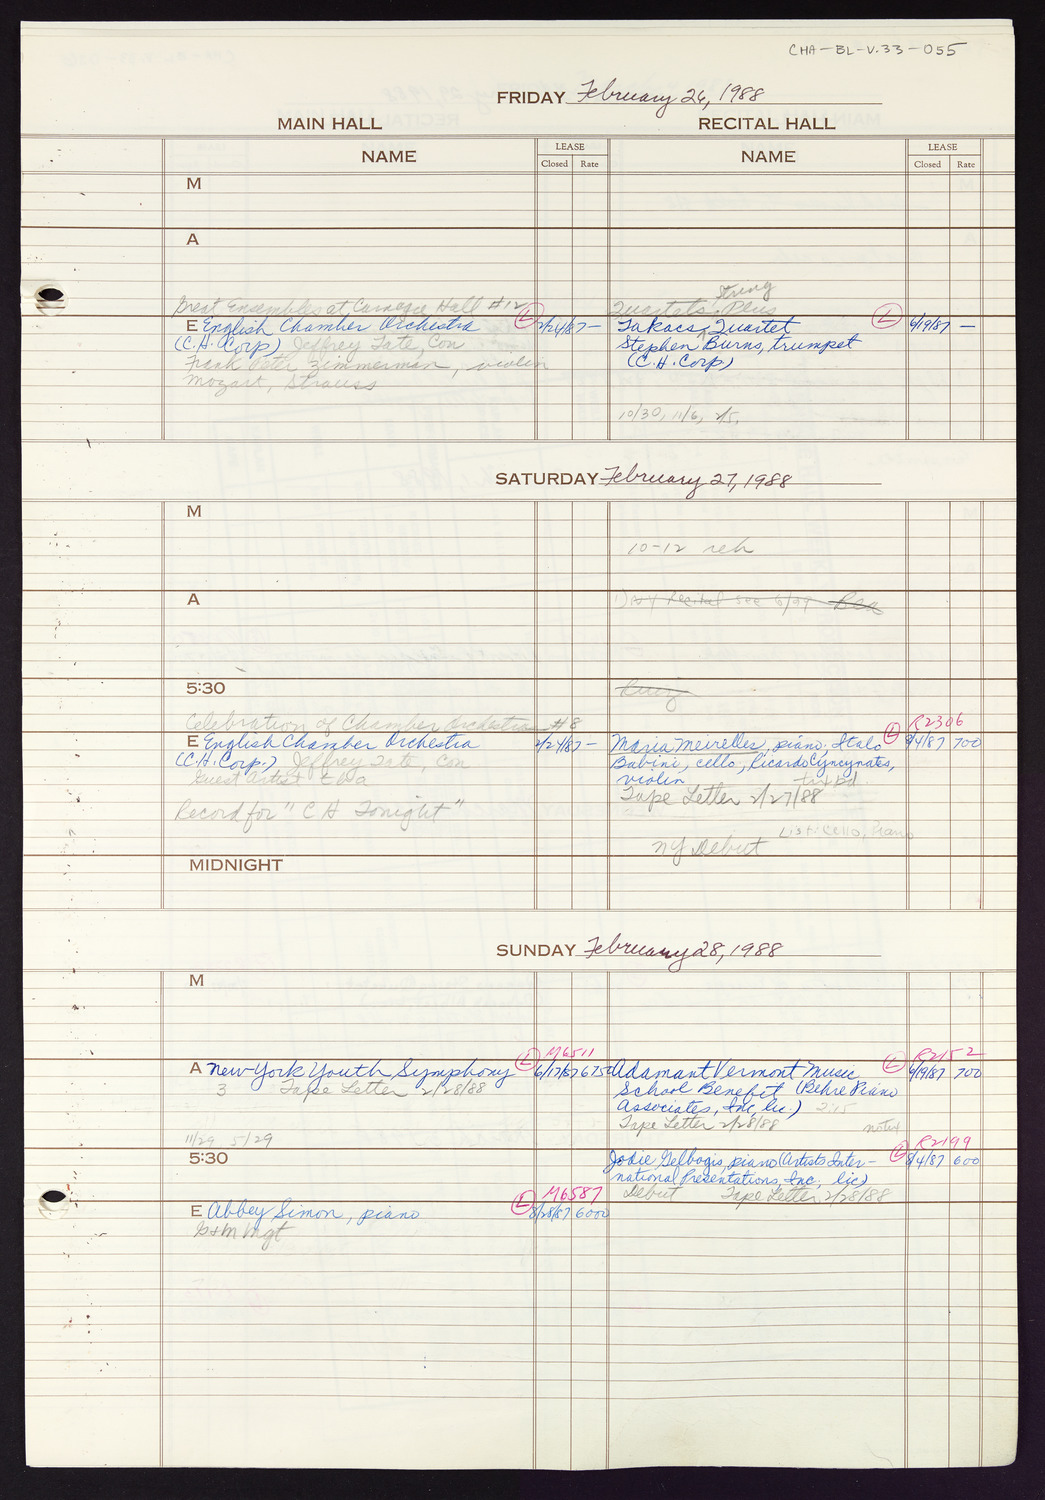 CHA-BL-V.33-055
FRIDAY February 26, 1988
MAIN HALL RECITAL HALL
NAME LEASE Closed Rate NAME LEASE Closed Rate
M
A
Great Ensembles at Carnegie Hall #12
String
Quartets Plus
E English Chamber Orchestra L 2/24/87 —
(C.H. Corp) Jeffrey Tate, Con
Frank Peter Zimmerman, violin
Mozart, Strauss
Takacs Quartet L 6/9/87 —
Stephen Burns, trumpet
(C.H. Corp)
10/30, 11/6, 2/5,
SATURDAY February 27, 1988
M
10-12 reh
A
5:30
Celebration of Chamber Orchestras #8
E English Chamber Orchestra 2/24/87 —
(C.H. Corp.) Jeffrey Tate, Con
Guest Artist tba
Record for "C H Tonight"
R2306
Maria Meirelles, piano, Italo L 9/4/87 700
Babini, cello, Ricardo Cyncynates,
violin
Tape Letter 2/27/88
List: Cello, Piano
NY Debut
MIDNIGHT
SUNDAY February 28, 1988
M
M6511
A New York Youth Symphony L 6/17/87 6750
3 Tape Letter 2/28/88
11/29 5/29
R2152
Adamant Vermont Music L 6/9/87 700
School Benefit (Behre Piano
Associates, Inc, lic)
2:15
Tape Letter 2/28/88
notix
5:30
R2199
Jodie Gelbogis, piano (Artists Inter- L 8/4/87 600
national Presentations, Inc, lic)
Debut Tape Letter 2/28/88
M6587
E Abbey Simon, piano L 8/28/87 6000
G+M Mgt